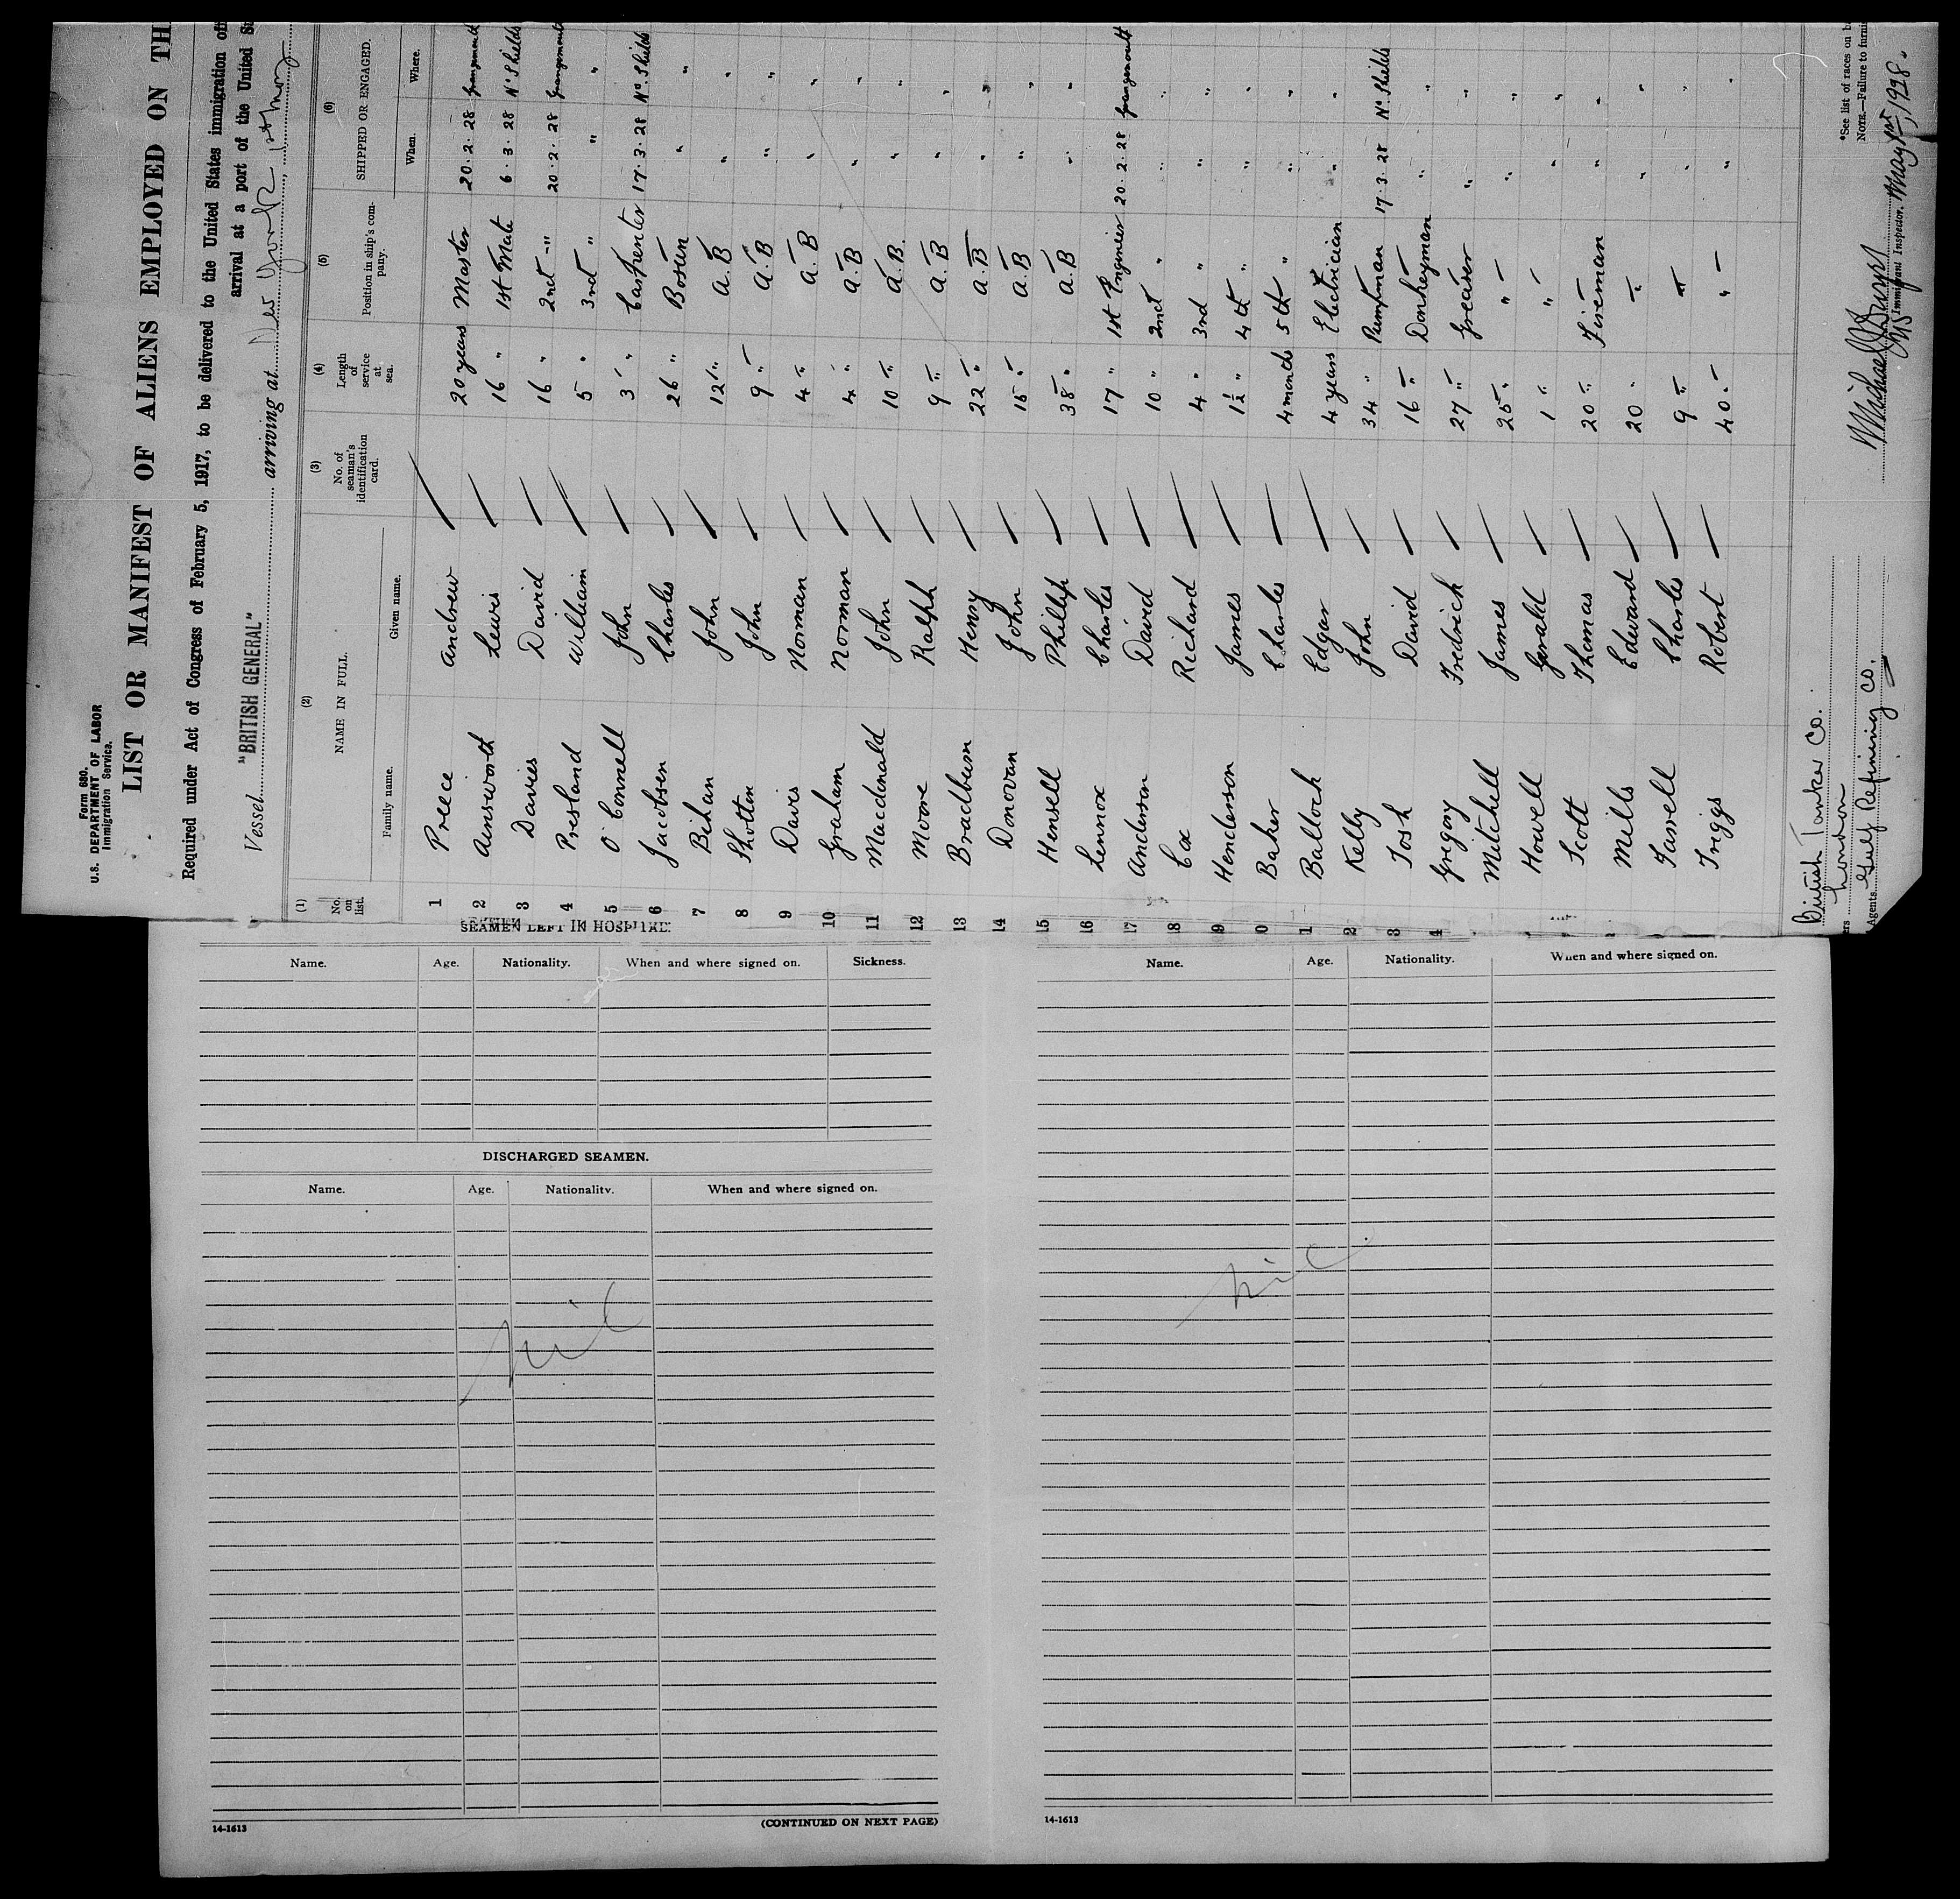 Form 680.
U.S. DEPARTMENT OF LABOR
Immigration Service.
LIST OR MANIFEST OF ALIENS EMPLOYED ON TH
Required under Act of Congress of February 5, 1917, to be delivered to the United States immigration
arrival at a port of the United
Vessel "BRITISH GENERAL" arriving at New York, 1st May
(1) (2) (3) (4) (5) (6)
No. on list. NAME IN FULL. No. of seaman's identification card. Length of service at sea. Position in ship's company. SHIPPED OR ENGAGED.
Family name. Given name. When. Where.
1 Preece Andrew 20 years Master 20.2.28 Grangemouth
2 Ainsworth Lewis 16 " 1st Mate 6.3.28 No. Shields
3 Davies David 16 " 2nd " 20.2.28 Grangemouth
4 Presland William 5 " 3rd " " "
5 O'Connell John 3 " Carpenter 17.3.28 No. Shields
6 Jacobsen Charles 26 " Bosun " "
7 Bihan John 12 " A.B " "
8 Shotton John 9 " A.B " "
9 Davis Norman 4 " A.B " "
10 Graham Norman 4 " A.B " "
11 Macdonald John 10 " A.B. " "
12 Moore Ralph 9 " A.B " "
13 Bradburn Henry 22 " A.B " "
14 Donovan John 15 " A.B " "
15 Hensell Phillip 38 " A.B " "
16 Lennox Charles 17 " 1st Engineer 20.2.28 Grangemouth
17 Anderson David 10 " 2nd " " "
18 Cox Richard 4 " 3rd " " "
19 Henderson James 1½ " 4th " " "
0 Baker Charles 4 months 5th " " "
1 Balloch Edgar 4 years Electrician " "
2 Kelly John 34 " Pumpman 17.3.28 No. Shields
3 Tosh David 16 " Donkeyman " "
4 Gregory Fredrich 27 " Greaser " "
Mitchell James 25 " " " "
Howell Gerald 1 " " " "
Scott Thomas 20 " Fireman " "
Mills Edward 20 " " " "
Farwell Charles 9 " " " "
Triggs Robert 40 " " " "
British Tanker Co.
London
Agents Gulf Refining Co.
Immigrant Inspector. May 1st, 1928.
*See list of races on
NOTE.—Failure to
SEAMEN LEFT IN HOSPITAL.
Name. Age. Nationality. When and where signed on. Sickness.
DISCHARGED SEAMEN.
Name. Age. Nationality. When and where signed on.
nil
14-1613 (CONTINUED ON NEXT PAGE)
Name. Age. Nationality. When and where signed on.
nil
14-1613